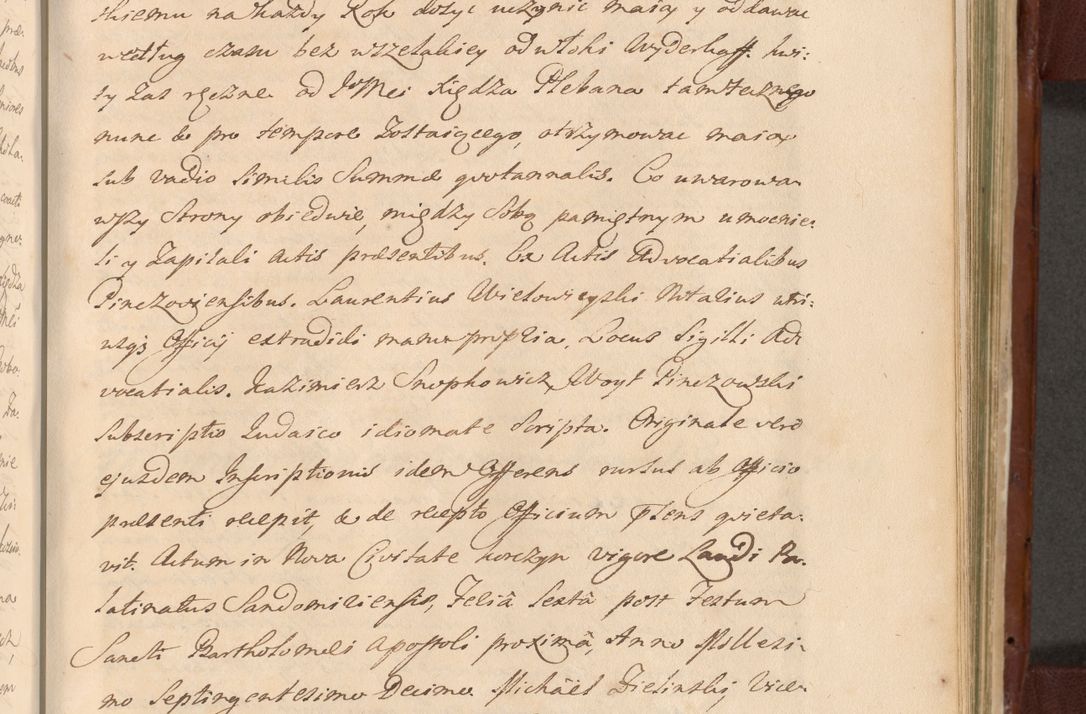 skiemu na każdy Rok dosyć uczynić maią y oddawać
według czasu bez wszelakiey odwłoki Wyderkaff. kwi:
ty zas ręczne od JMci Xiędza Plebana tamtecznego
nunc & pro tempore zostaiącego, otrzymować maią
sub vadio similis Summæ quotannalis. Co uwarowa
wszy strony obiedwie, między sobą pamiętnym umocnie:
li y zapisali actis præsentibus. Ex Actis Advocatialibus
Pinczoviensibus. Laurentius Wielowieyski Notarius utri:
usq3 Officij extradidi manu propria. Locus Sigilli Ad
vocatialis. Kazimierz Snopkowicz Woyt Pinczowski
Subscriptio Judaico idiomate scripta. Originale vero
ejusdem Inscriptionis idem Offerens rursus ab Officio
præsenti recepit, & de recepto Officium pñens quieta:
vit. Actum in Nova Civitate Korczyn vigore Laudi Pa:
latinatus Sandomiriensis, Feriâ sextâ post Festum
Sancti Bartholomei Apostoli proximâ, Anno Millesi:
mo Septingentesimo Decimo Michäel Zielinskj Vice: